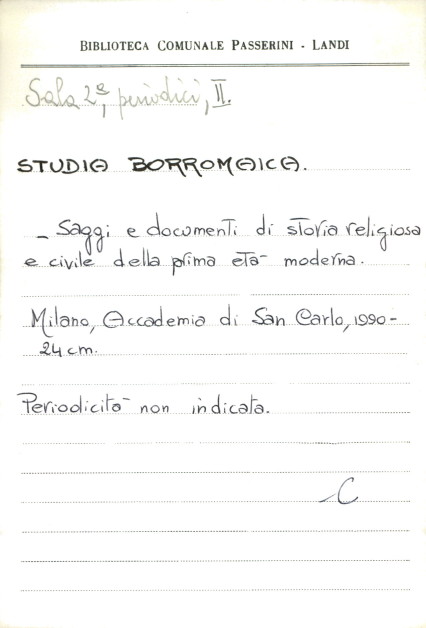 BIBLIOTECA COMUNALE PASSERINI - LANDI
Sala 2ª, periodici, II.
STUDIA BORROMAICA.
- Saggi e documenti di storia religiosa
e civile della prima età moderna.
Milano, Accademia di San Carlo, 1990-
24 cm.
Periodicità non indicata.
C